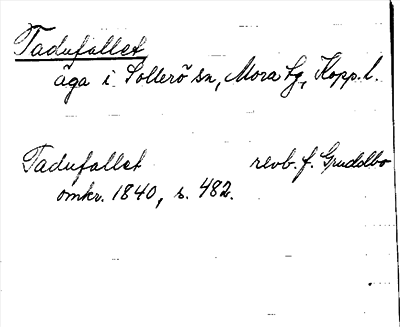 Tadufallet
äga i Sollerö sn, Mora tg, Kopp. l.
Tadufallet revb. f. Gruddbo
omkr. 1840, s. 482.